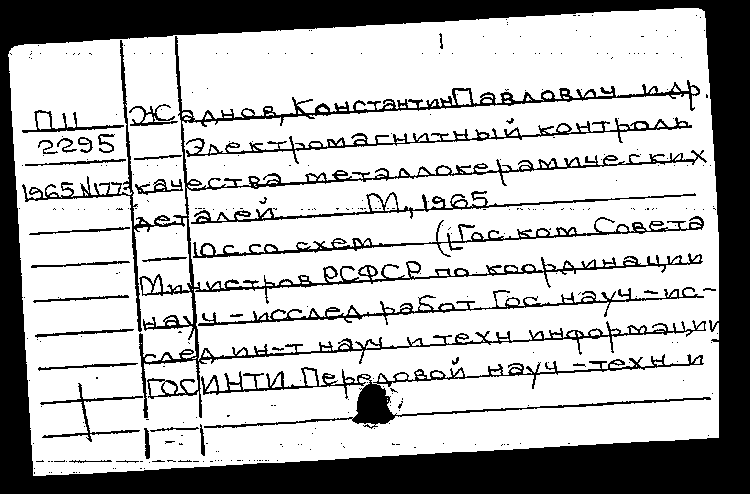 П11 Жаднов, Константин Павлович и др.
2295 Электромагнитный контроль
1965 N1773 качества металлокерамических
деталей. М., 1965
10 с. со схем. (Гос. ком. Совета
Министров РСФСР по координации
науч-исслед. работ Гос. науч-ис-
след. ин-т науч. и техн информации
ГОСИНТИ. Передовой науч-техн и